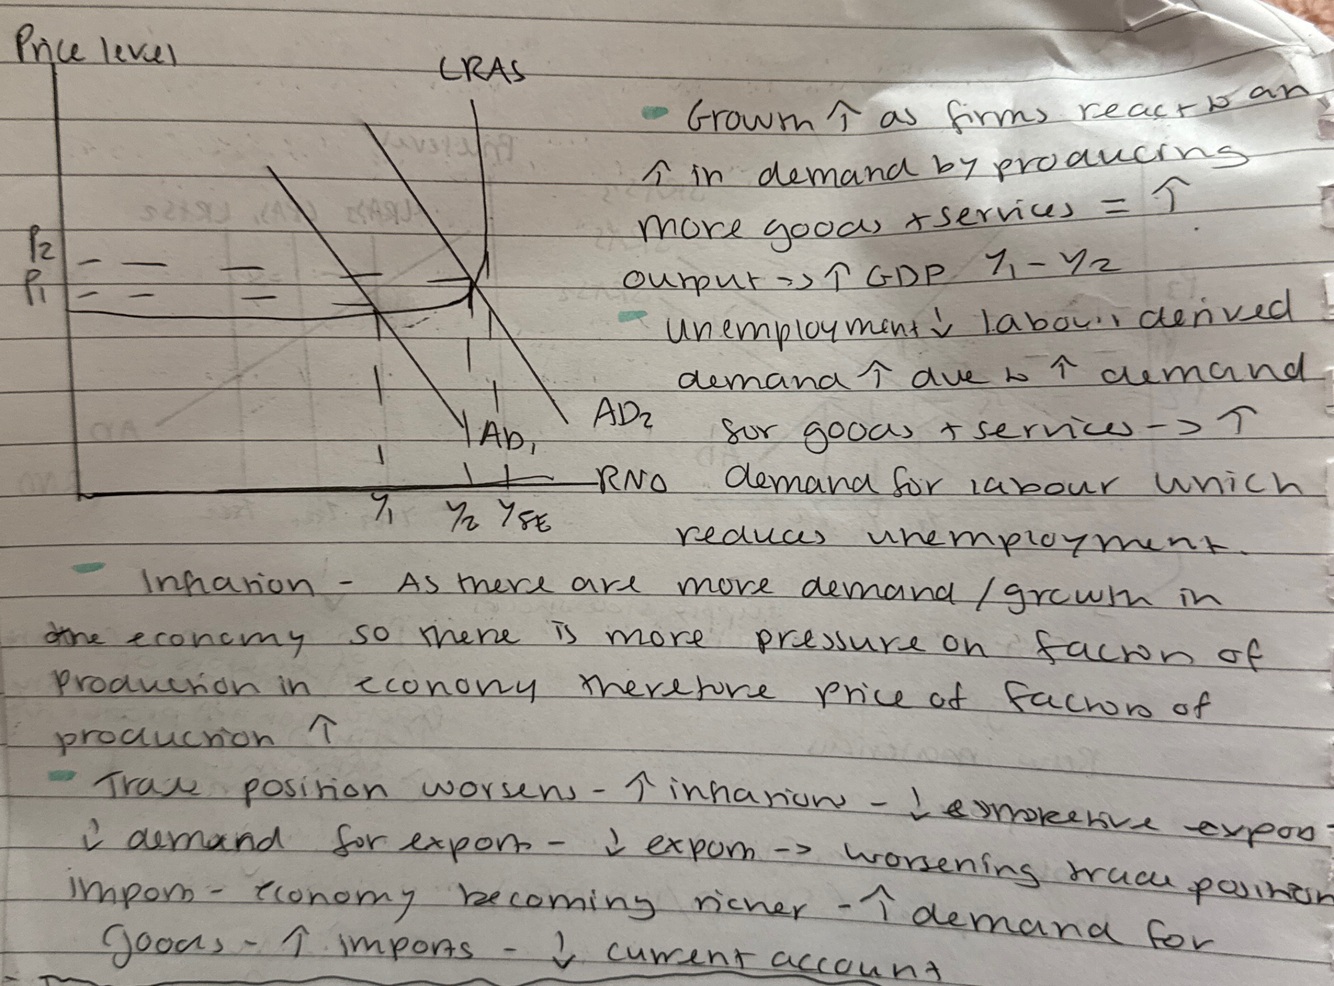 Price level
LRAS
P2
P1
AD1
AD2
RNO
Y1 Y2 YFE
- Growth ↑ as firms react to an
↑ in demand by producing
more goods + services = ↑
output -> ↑ GDP Y1 - Y2
- Unemployment ↓ labour derived
demand ↑ due to ↑ demand
for goods + services -> ↑
demand for labour which
reduces unemployment.
- Inflation - As there are more demand / growth in
the economy so there is more pressure on factors of
production in economy therefore price of factors of
production ↑
- Trade position worsens - ↑ inflation - ↓ export
↓ demand for exports - ↓ exports -> worsening trade position
imports - economy becoming richer - ↑ demand for
goods - ↑ imports - ↓ current account